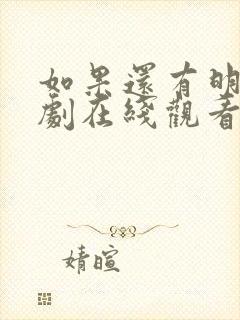 如果還有明
劇在綫觀看
婧暄